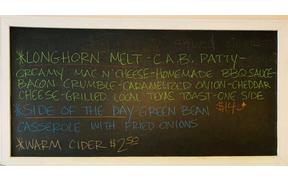 *LONGHORN MELT - C.A.B. PATTY -
CREAMY MAC N' CHEESE - HOMEMADE BBQ SAUCE -
BACON CRUMBLE - CARAMELIZED ONION - CHEDDAR
CHEESE - GRILLED LOCAL TEXAS TOAST - ONE SIDE
*SIDE OF THE DAY - GREEN BEAN $14-*
CASSEROLE WITH FRIED ONIONS
*WARM CIDER $2.50